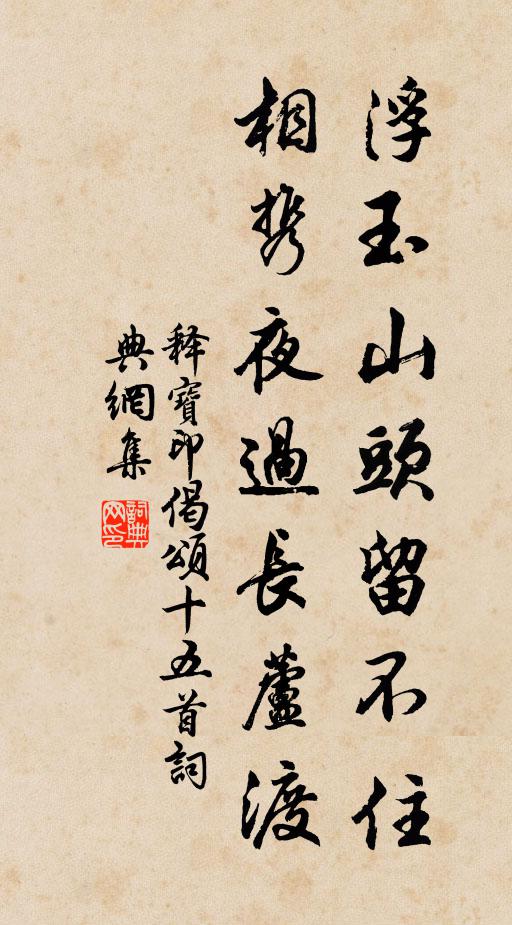 浮玉山頭留不住
相携夜過長蘆渡
釋寶印偈頌十五首詞
典網集
詞典网印